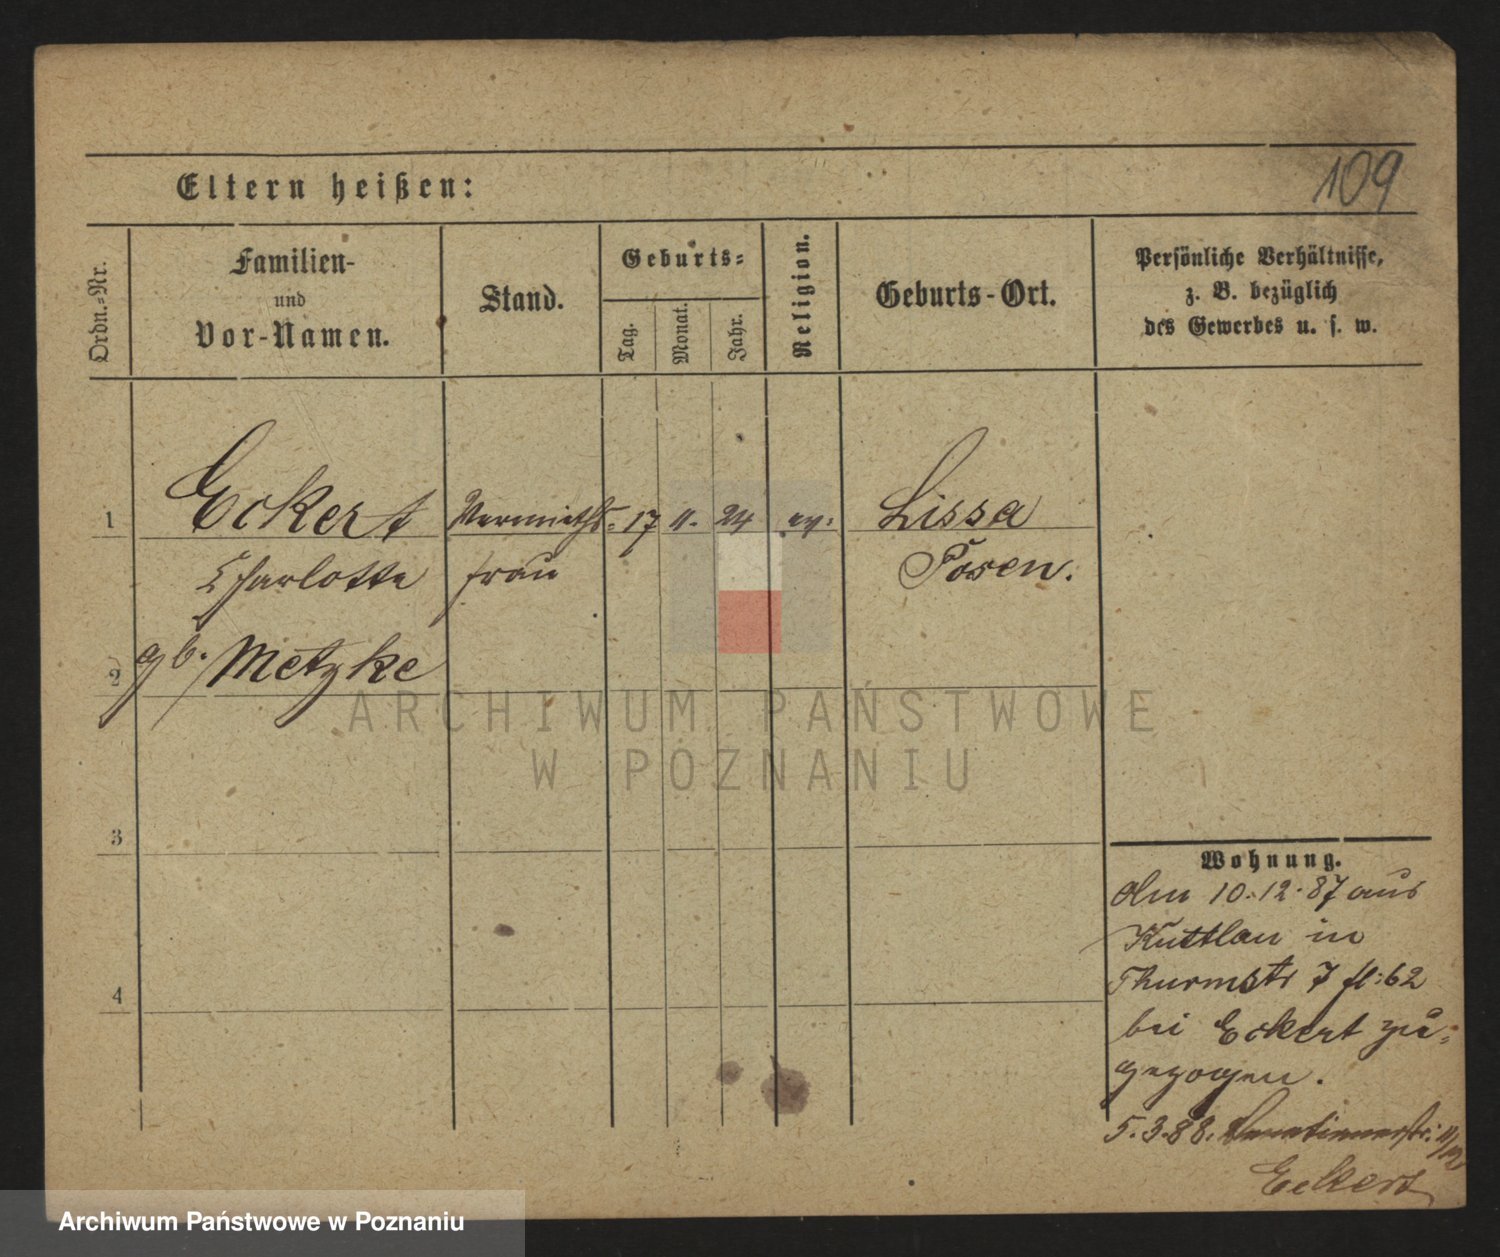 109
Eltern heißen:
Ordn.-Nr.
Familien-
und
Vor-Namen.
Stand.
Geburts-
Tag.
Monat.
Jahr.
Religion.
Geburts-Ort.
Persönliche Verhältnisse,
z. B. bezüglich
des Gewerbes u. s. w.
1
Eckert
Charlotte
gb. Metzke
Vermieths-
frau
17
11.
24
ev:
Lissa
Posen.
2
3
4
Wohnung.
Am 10.12.87 aus
Kuttlau in
Thurmstr 7
62
bei Eckert zu-
gezogen.
5.3.88.
Eckert
ARCHIWUM PAŃSTWOWE
W POZNANIU
Archiwum Państwowe w Poznaniu